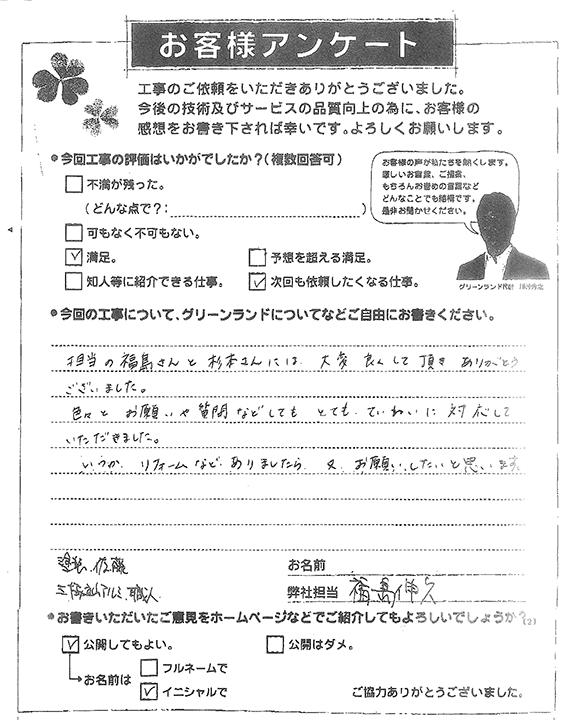 お客様アンケート
工事のご依頼をいただきありがとうございました。
今後の技術及びサービスの品質向上の為に、お客様の
感想をお書き下されば幸いです。よろしくお願いします。
●今回工事の評価はいかがでしたか?(複数回答可)
お客様の声が私たちを熱くします。
嬉しいお言葉、ご指摘、
もちろんお褒めの言葉など
どんなことでも結構です。
是非お聞かせください。
不満が残った。
(どんな点で?: )
可もなく不可もない。
満足。
予想を超える満足。
知人等に紹介できる仕事。
次回も依頼したくなる仕事。
グリーンランド代表
●今回の工事について、グリーンランドについてなどご自由にお書きください。
担当の福島さんと杉本さんには、大変良くして頂きありがとう
ございました。
色々とお願いや質問などしてもとてもていねいに対応して
いただきました。
いつか、リフォームなどありましたら、又、お願いしたいと思います
塗装、佐藤
お名前
アルミ、職人
弊社担当 福島伸久
●お書きいただいたご意見をホームページなどでご紹介してもよろしいでしょうか?(2)
公開してもよい。
公開はダメ。
お名前は
フルネームで
イニシャルで
ご協力ありがとうございました。